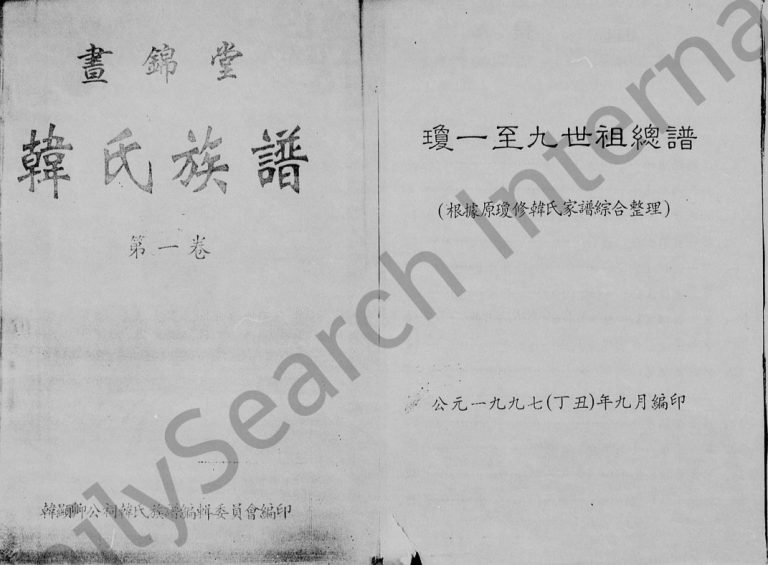 晝錦堂
韓氏族譜
第一卷
韓顯卿公祠韓氏族譜編輯委員會編印
瓊一至九世祖總譜
(根據原瓊修韓氏家譜綜合整理)
公元一九九七(丁丑)年九月編印
ilySearch Interna